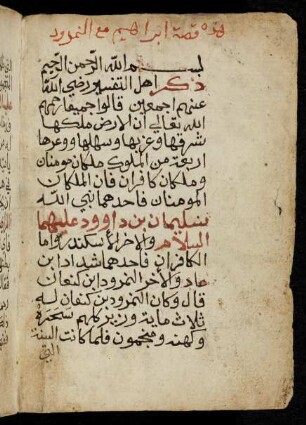 هذه قصة ابراهيم مع النمرود
بسم الله الرحمن الرحيم
ذكر اهل التفسير رضي الله
عنهم اجمعين قالوا جميعا رحمهم
الله تعالي ان الارض ملكها
شرقها وغربها وسهلها ووعرها
اربعة من الملوك ملكان مومنان
وملكان كافران فان الملكان
المومنان فاحدهما نبي الله
سليمان بن داوود عليهما
السلام والاخر الاسكندر واما
الكافران فاحدهما شداد ابن
عاد والاخر النمرود ابن كنعان
قال وكان النمرود بن كنعان له
ثلاث ماية وزير كلهم سحرة
وكهنه ومنجمون فلما كانت السنة
التي